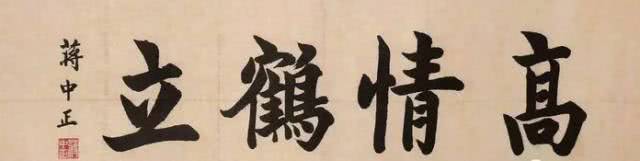 高情鶴立
蔣中正